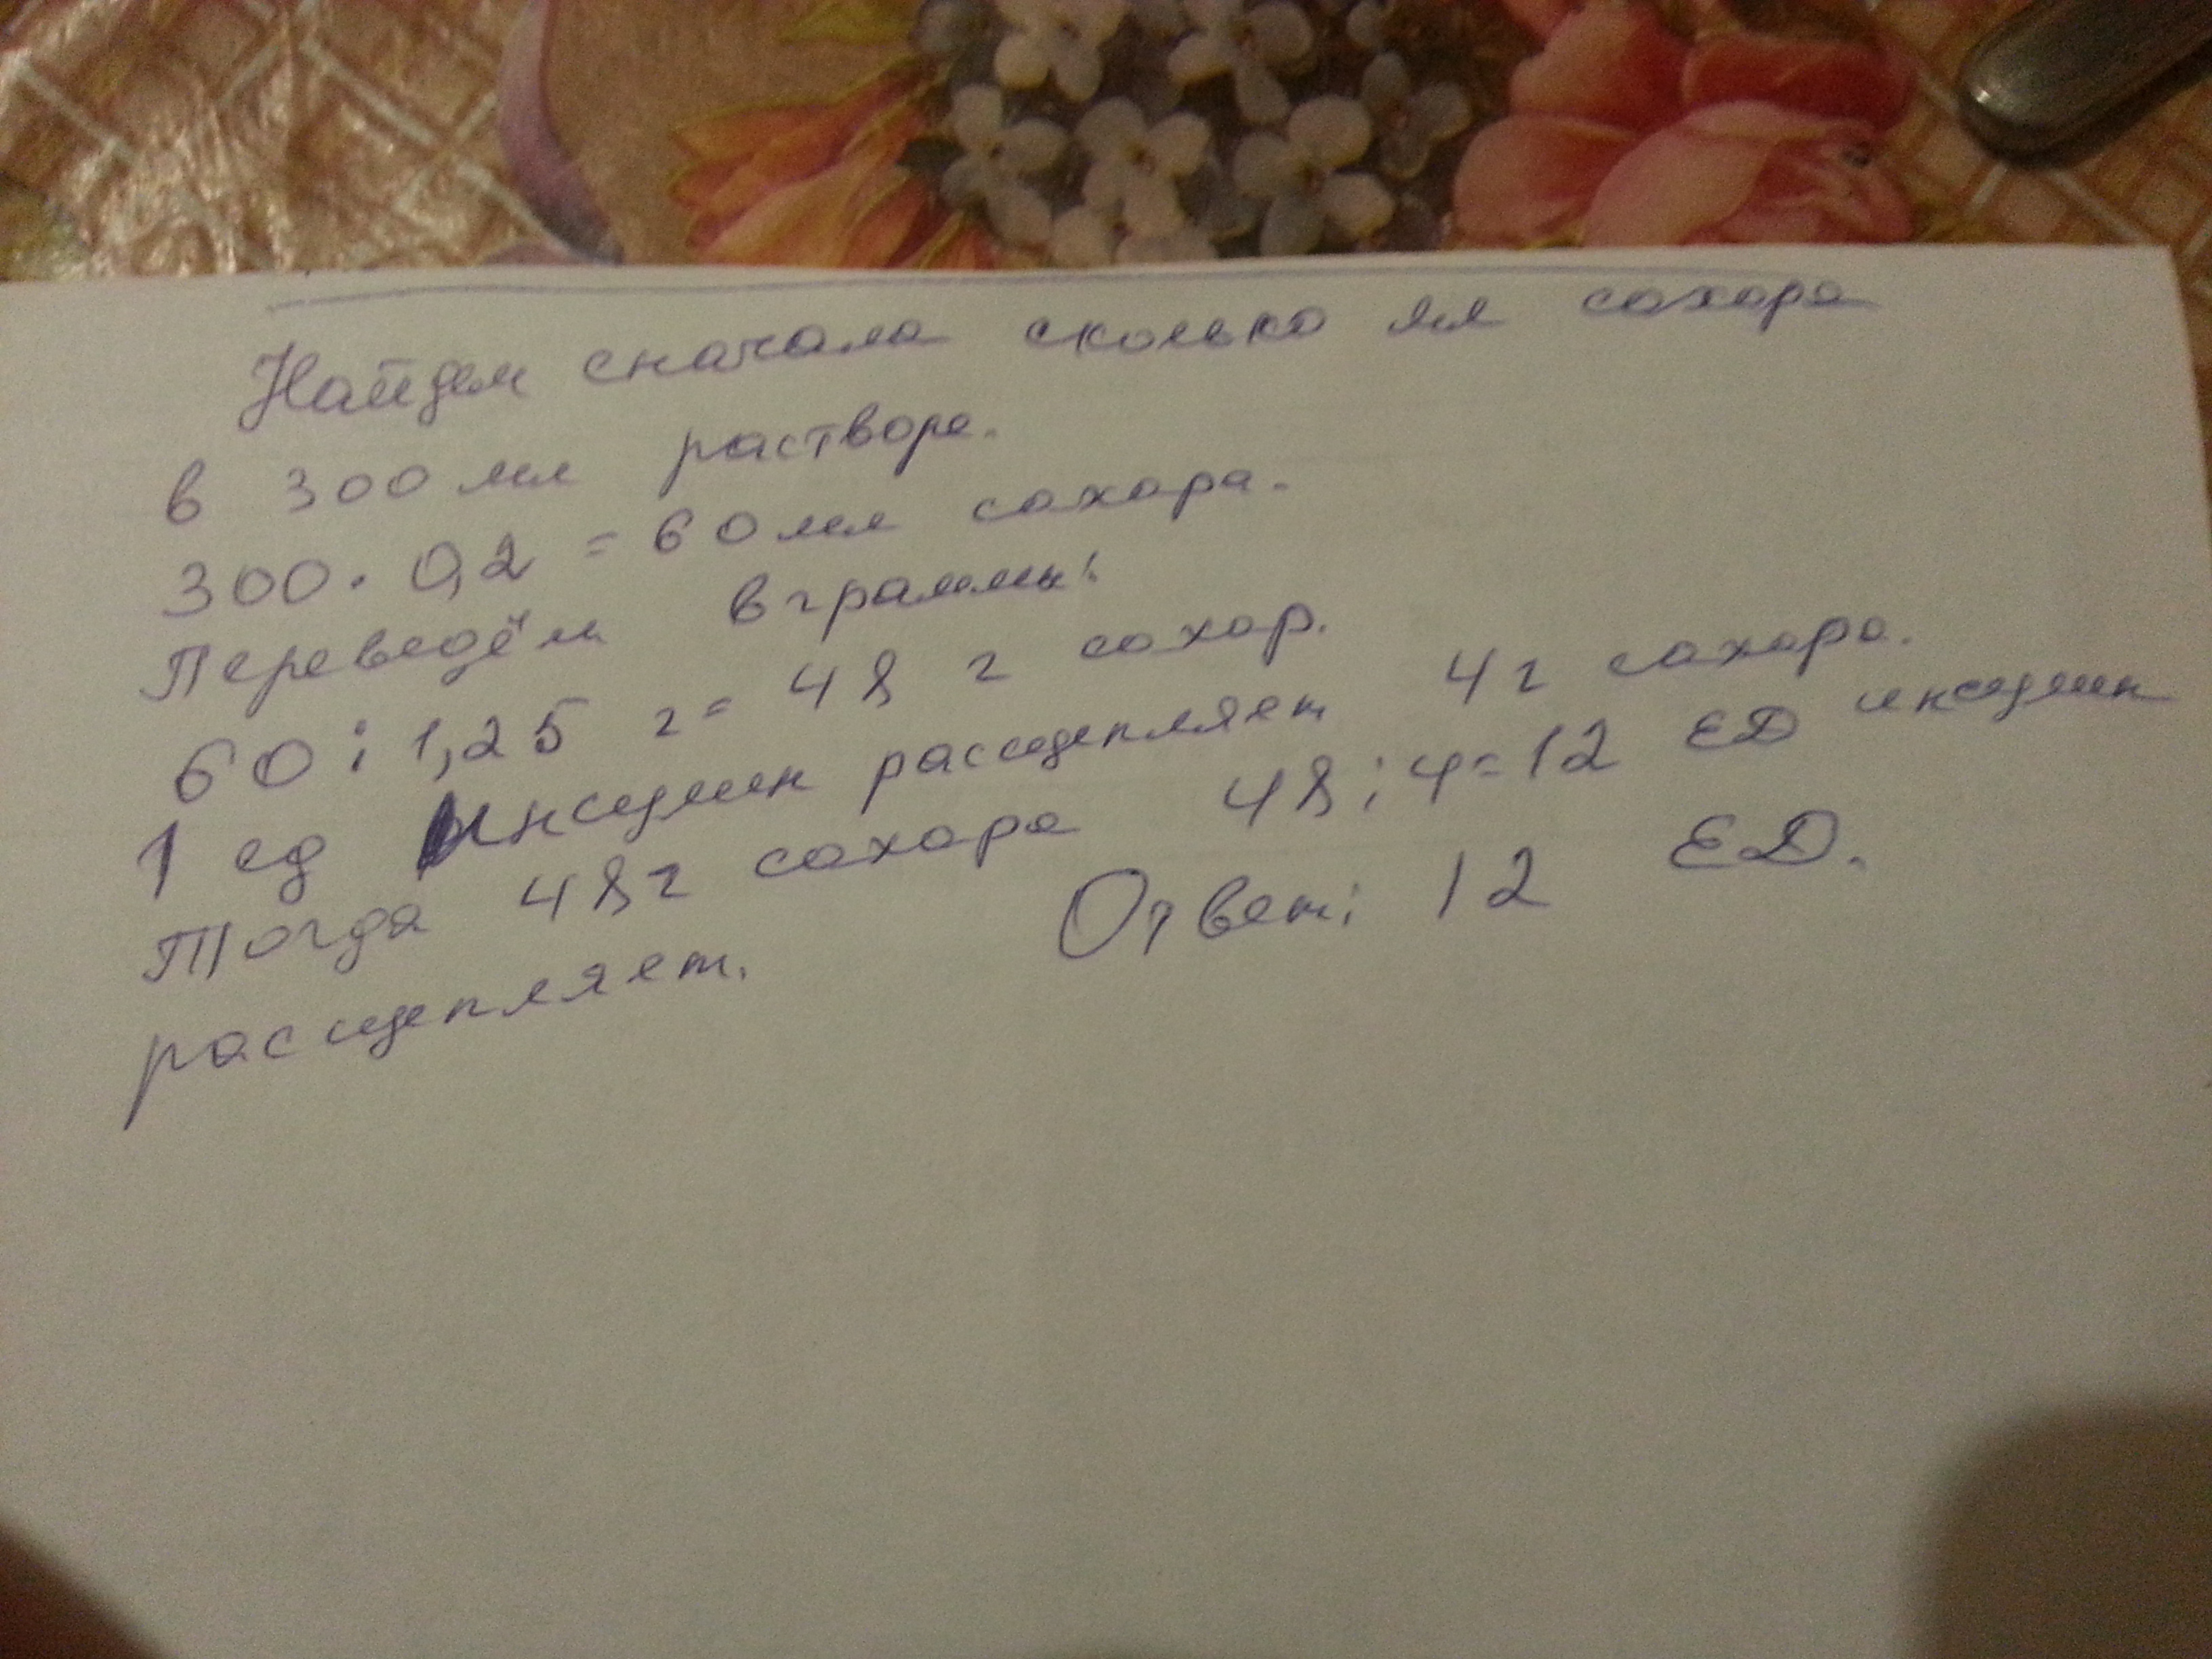 Найдем сначала сколько мл сахара
в 300 мл растворе.
300 · 0,2 = 60 мл сахара.
Переведём в граммы:
60 : 1,25 г = 48 г сахар.
1 ед инсулин расщепляет 4 г сахара.
Тогда 48 г сахара 48 : 4 = 12 ЕД инсулин
расщепляет. Ответ: 12 ЕД.